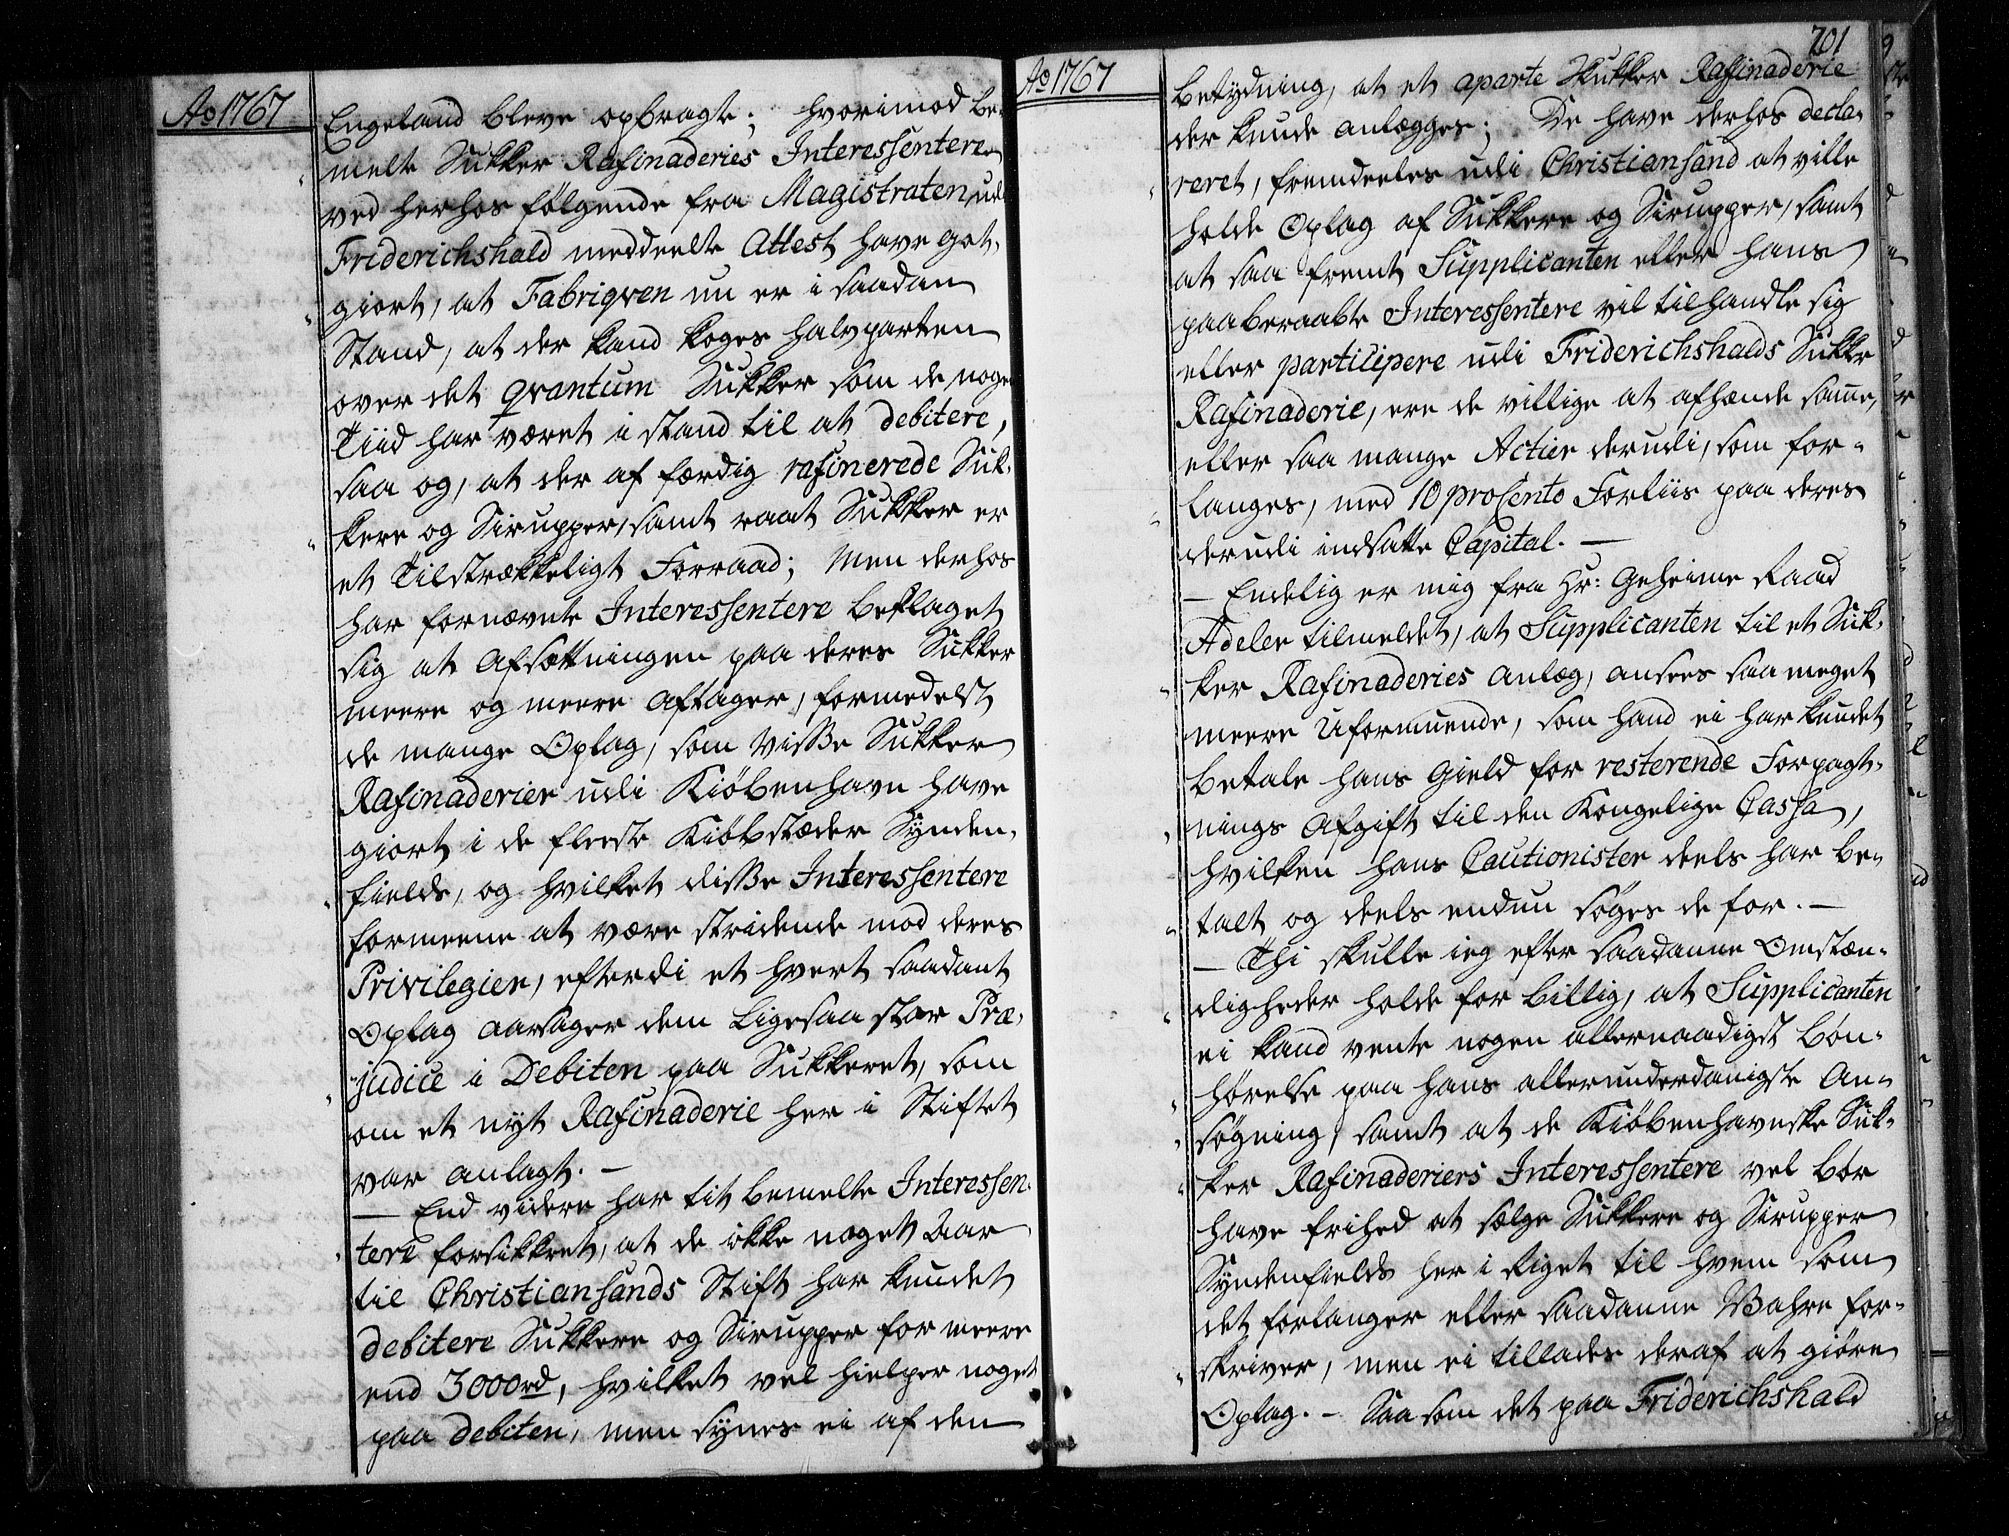 Ao 1767
Engeland bleve opbragte; hvorimod be-
melte Sukker Rafinaderies Interessentere
ved herhos følgende fra Magistraten udi
Friderichshald meddeelte Attest have got-
giort, at Fabriqven nu er i saadan
Stand, at der kand koges halvparten
over det qvantum Sukker som de nogen
Tiid har været i stand til at debitere,
saa og, at der af færdig rafinerede Suk-
kere og Sirupper, samt raat Sukker er
et Tilstrækkeligt Forraad; Men derhos
har fornævnte Interessentere beklaget
sig at Afsætningen paa deres Sukker
meere og meere Aftager, formedelst
de mange Oplag, som visse Sukker
Rafinaderier udi Kiøbenhavn have
giort i de fleeste Kiøbstæder Synden-
fields, og hvilket disse Interessentere
formeene at være stridende mod deres
Privilegier, efterdi et hvert saadant
Oplag aarsager dem ligesaa stor Præ-
judice i Debiten paa Sukkeret, som
om et nyt Rafinaderie her i Stiftet
var anlagt. —
— End videre har tit bemelte Interessen-
tere forsikkret, at de ikke noget Aar
til Christiansands Stift har kundet
debitere Sukkere og Sirupper for meere
end 3000 rd, hvilket vel hielper noget
paa debiten, men synes ei af den
Ao 1767
701
betydning, at et aparte Sukker Rafinaderie
der kunde anlægges; De have derhos decla-
reret, fremdeeles udi Christiansand at ville
holde Oplag af Sukkere og Sirupper, samt
at saa fremt Supplicanten eller hans
paaberaabte Interessentere vil tilhandle sig
eller participere udi Friderichshalds Sukker
Rafinaderie, ere de villige at afhænde samme,
eller saa mange Actier derudi, som for-
langes, med 10 proCento Forliis paa deres
derudi indsatte Capital. —
— Endelig er mig fra Hr: Geheime Raad
Adeler tilmeldet, at Supplicanten til et Suk-
ker Rafinaderies Anlæg, ansees saa meget
meere Uformuende, som hand ei har kundet
betale hans Gield for resterende Forpagt-
nings Afgift til den Kongelige Cassa,
hvilken hans Cautionister deels har be-
talt og deels endnu søges de for. —
— Thi skulle ieg efter saadanne Omstæn-
digheder holde for billig, at Supplicanten
ei kand vente nogen allernaadigst bøn-
hørelse paa hans allerunderdanigste An-
søgning, samt at de Kiøbenhavnske Suk-
ker Rafinaderiers Interessentere vel bør
have frihed at sælge Sukkere og Sirupper
Syndenfields her i Riget til hvem som
det forlanger eller saadanne Wahre for-
skriver, men ei tillades deraf at giøre
Oplag. — Saa som det paa Friderichshald